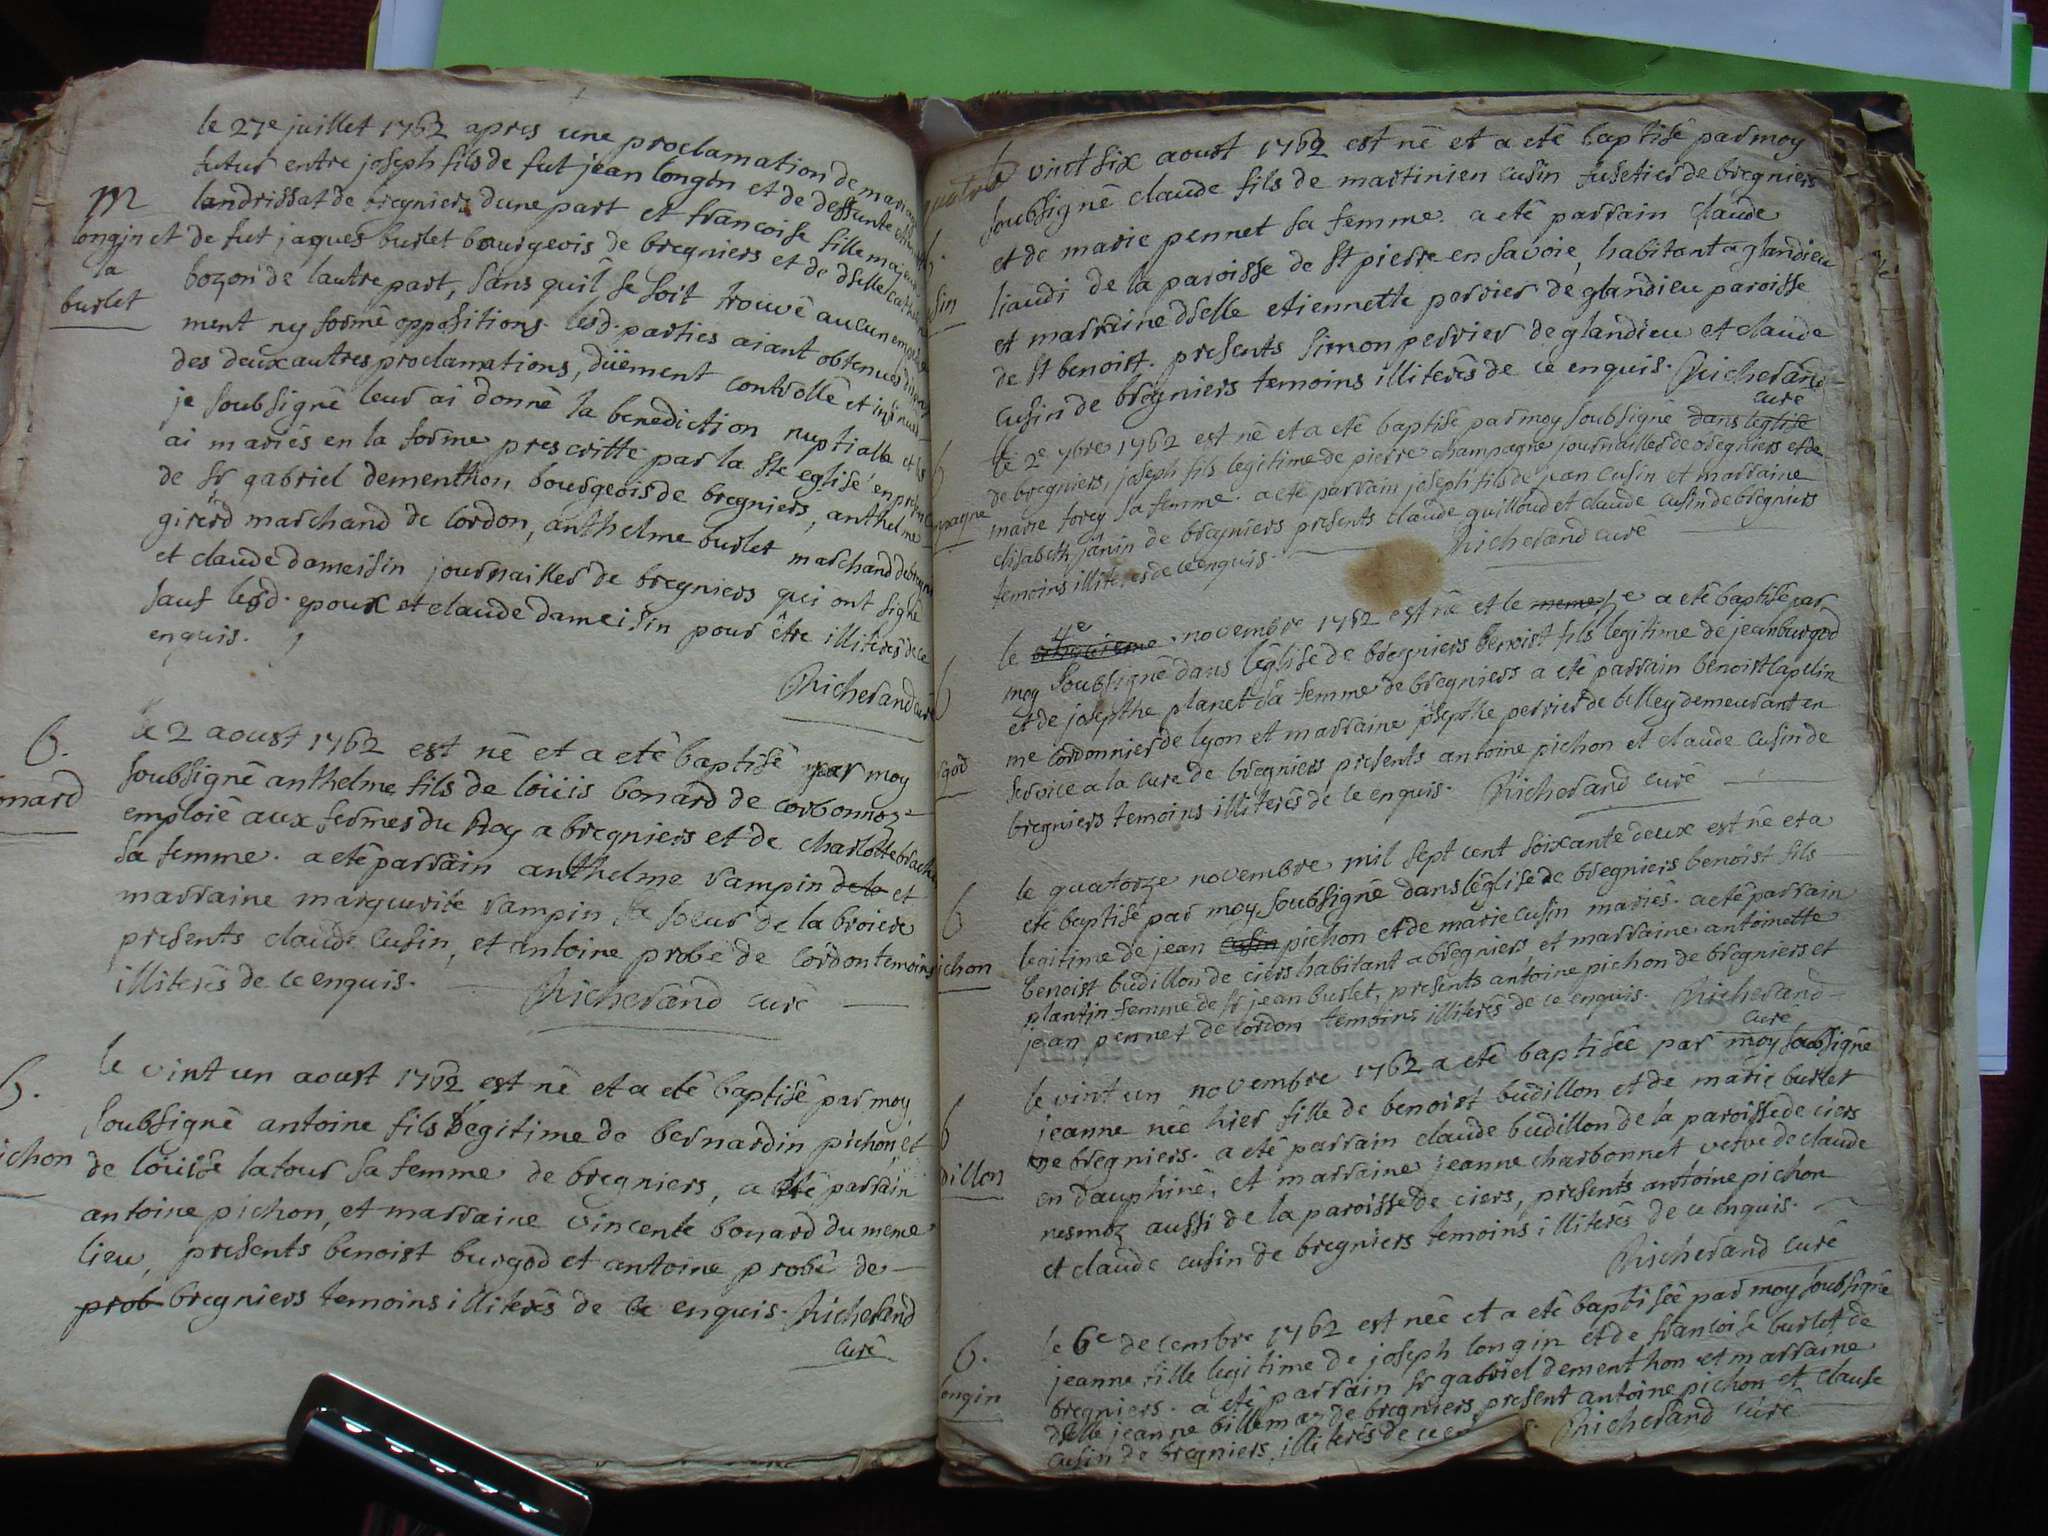 le 27e juillet 1762 apres une proclamation de mariage
futur entre joseph fils de fut jean longin et de deffunte
landrissat de bregniers dune part et francoise fille majeure
de fut jaques burlet bourgeois de bregniers et de dselle
bozon de lautre part, sans quil se soit trouvé aucun
ment ny formé oppositions. lesd. parties aiant obtenues
des deux autres proclamations, düement controllé et insinué
je soubsigné leur ai donné la benediction nuptialle et les
ai mariés en la forme prescritte par la ste eglise en
de sr gabriel dementhon bourgeois de bregniers, anthelme
girerd marchand de cordon, anthelme burlet marchand
et claude dameisin journaillier de bregniers qui ont signé
sauf lesd. epoux et claude dameisin pour être illiterés de ce
enquis.
Richerand curé
M
longin et
la
burlet
le 2 aoust 1762 est né et a eté baptisé par moy
soubsigné anthelme fils de loüis bonard de corbonnoz
emploié aux fermes du Roy a bregniers et de charlotte
sa femme. a eté parrain anthelme rampin de la et
marraine marguerite rampin sa soeur de la broiere
presents claude cusin, et antoine probe de cordon temoins
illiterés de ce enquis. Richerand curé
b.
onard
le vint un aoust 1762 est né et a eté baptisé par moy
soubsigné antoine fils legitime de bernardin pichon et
de loüise latour sa femme de bregniers, a eté parrain
antoine pichon, et marraine vincente bonard du meme
lieu, presents benoist burgod et antoine probe de
prob bregniers temoins illiterés de ce enquis. Richerand
curé
b.
ichon
le vint six aoust 1762 est né et a eté baptisé par moy
soubsigné claude fils de martinien cusin fusetier de bregniers
et de marie pennet sa femme. a eté parrain claude
liaudi de la paroisse de st pierre en savoie, habitant a glandieu
et marraine dselle etiennette perrier de glandieu paroisse
de st benoist. presents simon perrier de glandieu et claude
cusin de bregniers temoins illiterés de ce enquis. Richerand
curé
sin
le 2e 7bre 1762 est né et a eté baptisé par moy soubsigné dans leglise
de bregniers, joseph fils legitime de pierre champagne journaillier de bregniers et de
marie torey sa femme. a eté parrain joseph fils de jean cusin et marraine
elisabeth janin de bregniers presents claude guilloud et claude cusin de bregniers
temoins illiterés de ce enquis. Richerand curé
b
pagne
le 4e novembre 1762 est né et le meme a eté baptisé par
moy soubsigné dans léglise de bregniers benoist fils legitime de jean burgod
et de josepthe planet sa femme de bregniers a eté parrain benoist capelin
me cordonnier de lyon et marraine josepthe perrier de belley demeurant en
service a la cure de bregniers presents antoine pichon et claude cusin de
bregniers temoins illiterés de ce enquis. Richerand curé
b
rgod
le quatorze novembre mil sept cent soixante deux est né et a
eté baptisé par moy soubsigné dans léglise de bregniers benoist fils
legitime de jean cusin pichon et de marie cusin mariés. a eté parrain
benoist budillon de ciers habitant a bregniers, et marraine antoinette
plantin femme de sr jean burlet, presents antoine pichon de bregniers et
jean pennet de cordon temoins illiterés de ce enquis. Richerand
curé
b
ichon
le vint un novembre 1762 a eté baptisée par moy soubsigné
jeanne née hier fille de benoist budillon et de marie burlet
de bregniers. a eté parrain claude budillon de la paroisse de ciers
en dauphiné, et marraine jeanne charbonnet vefve de claude
nesmoz aussi de la paroisse de ciers, presents antoine pichon
et claude cusin de bregniers temoins illiterés de ce enquis.
Richerand curé
b
dillon
le 6e decembre 1762 est née et a eté baptisée par moy soubsigné
jeanne fille legitime de joseph longin et de francoise burlet de
bregniers. a eté parrain sr gabriel dementhon et marraine
dselle jeanne billemaz de bregniers, present antoine pichon et claude
cusin de bregniers, illiterés de ce Richerand curé
b.
longin